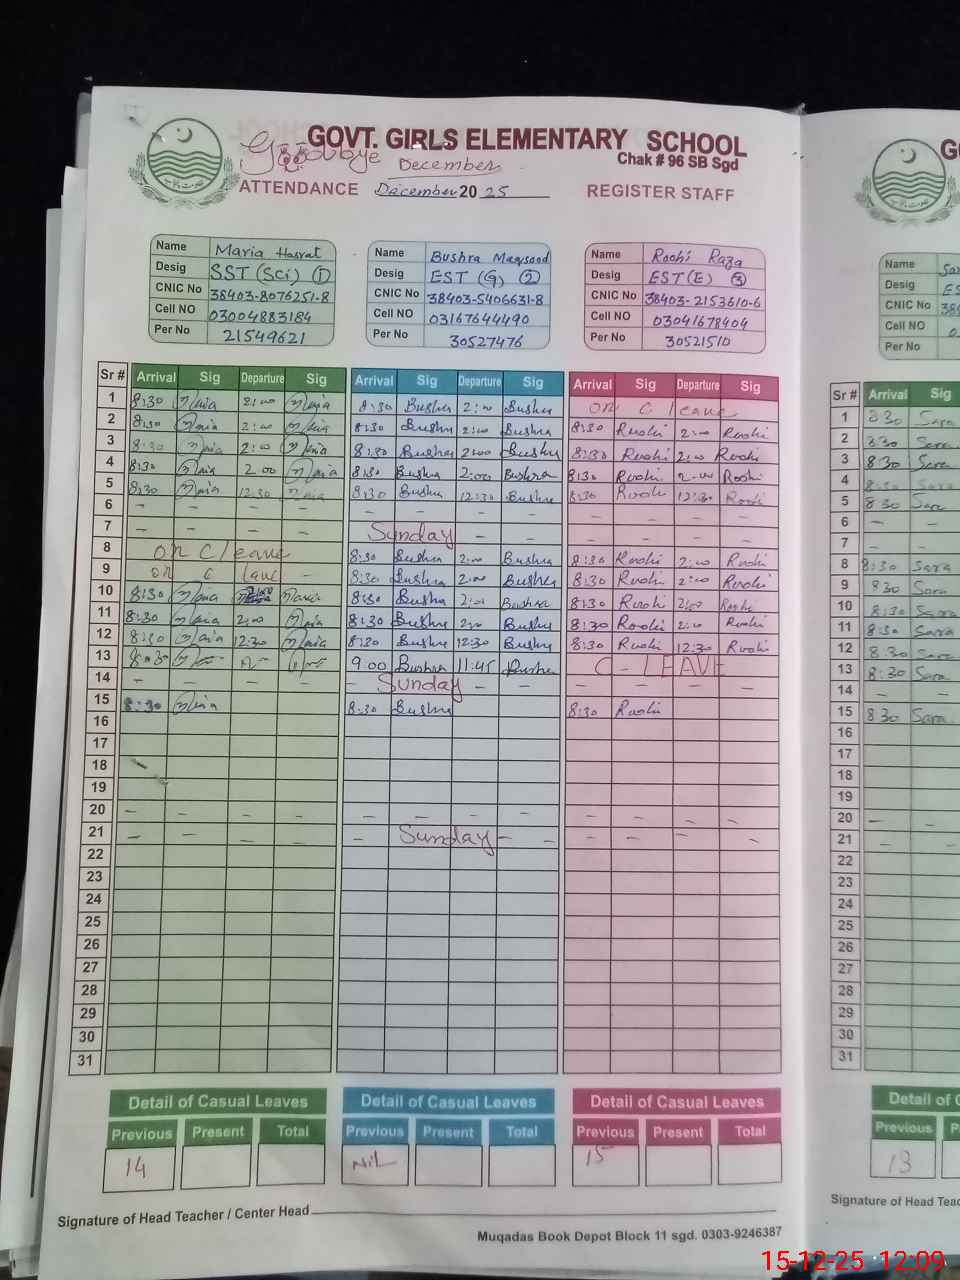 GOVT. GIRLS ELEMENTARY SCHOOL
Goodbye December
Chak # 96 SB Sgd
ATTENDANCE December 20 25 REGISTER STAFF
Name Maria Hasrat
Desig SST (SCi) 1
CNIC No 38403-8076251-8
Cell NO 03004883184
Per No 21549621
Name Bushra Maqsood
Desig EST (G) 2
CNIC No 38403-5406631-8
Cell NO 03167644490
Per No 30527476
Name Roohi Raza
Desig EST (E) 3
CNIC No 38403-2153610-6
Cell NO 03041678404
Per No 30521510
Sr # Arrival Sig Departure Sig Arrival Sig Departure Sig Arrival Sig Departure Sig
1 8:30 Maria 2:00 Maria 8:30 Bushra 2:00 Bushra on C leave
2 8:30 Maria 2:00 Maria 8:30 Bushra 2:00 Bushra 8:30 Roohi 2:00 Roohi
3 8:30 Maria 2:00 Maria 8:30 Bushra 2:00 Bushra 8:30 Roohi 2:00 Roohi
4 8:30 Maria 2:00 Maria 8:30 Bushra 2:00 Bushra 8:30 Roohi 2:00 Roohi
5 8:30 Maria 12:30 Maria 8:30 Bushra 12:30 Bushra 8:30 Roohi 12:30 Roohi
6 - - - - - - - - - - - -
7 - - - - Sunday - - - - - -
8 on C leave 8:30 Bushra 2:00 Bushra 8:30 Roohi 2:00 Roohi
9 on C leave - 8:30 Bushra 2:00 Bushra 8:30 Roohi 2:00 Roohi
10 8:30 Maria Maria 8:30 Bushra 2:00 Bushra 8:30 Roohi 2:00 Roohi
11 8:30 Maria 2:00 Maria 8:30 Bushra 2:00 Bushra 8:30 Roohi 2:00 Roohi
12 8:30 Maria 12:30 Maria 8:30 Bushra 12:30 Bushra 8:30 Roohi 12:30 Roohi
13 8:30 9:00 Bushra 11:45 Bushra C-LEAVE
14 - - - - - Sunday - - - - - -
15 8:30 Maria 8:30 Bushra 8:30 Roohi
16
17
18
19
20 - - - - - - - - - - - -
21 - - - - - Sunday - - - - -
22
23
24
25
26
27
28
29
30
31
Detail of Casual Leaves Detail of Casual Leaves Detail of Casual Leaves
Previous Present Total Previous Present Total Previous Present Total
14 NiL 15
Signature of Head Teacher / Center Head
Muqadas Book Depot Block 11 sgd. 0303-9246387
G
Name
Desig
CNIC No
Cell NO
Per No
Sr # Arrival Sig
1 8 30 Sara
2 8 30 Sara
3 8 30 Sara
4 8:30 Sara
5 8 30 Sara
6 - -
7 - -
8 8:30 Sara
9 8 30 Sara
10 8:30 Sara
11 8:30 Sara
12 8 30 Sara
13 8:30 Sara
14 - -
15 8 30 Sara
16
17
18
19
20 - -
21 - -
22
23
24
25
26
27
28
29
30
31
Detail of
Previous
13
Signature of Head Tea
15-12-25 12:09